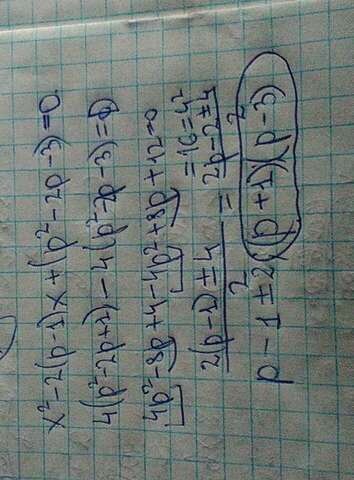 x²-2(p-1)x+(p²-2p-3)=0
4(p²-2p+1)-4(p²-2p-3)=D
4p²-8p+4-4p²+8p+12=0
=16=4²
2(p-1)±4/2 = 2p-2±4/2
p-1±2 (p+1)(p-3)